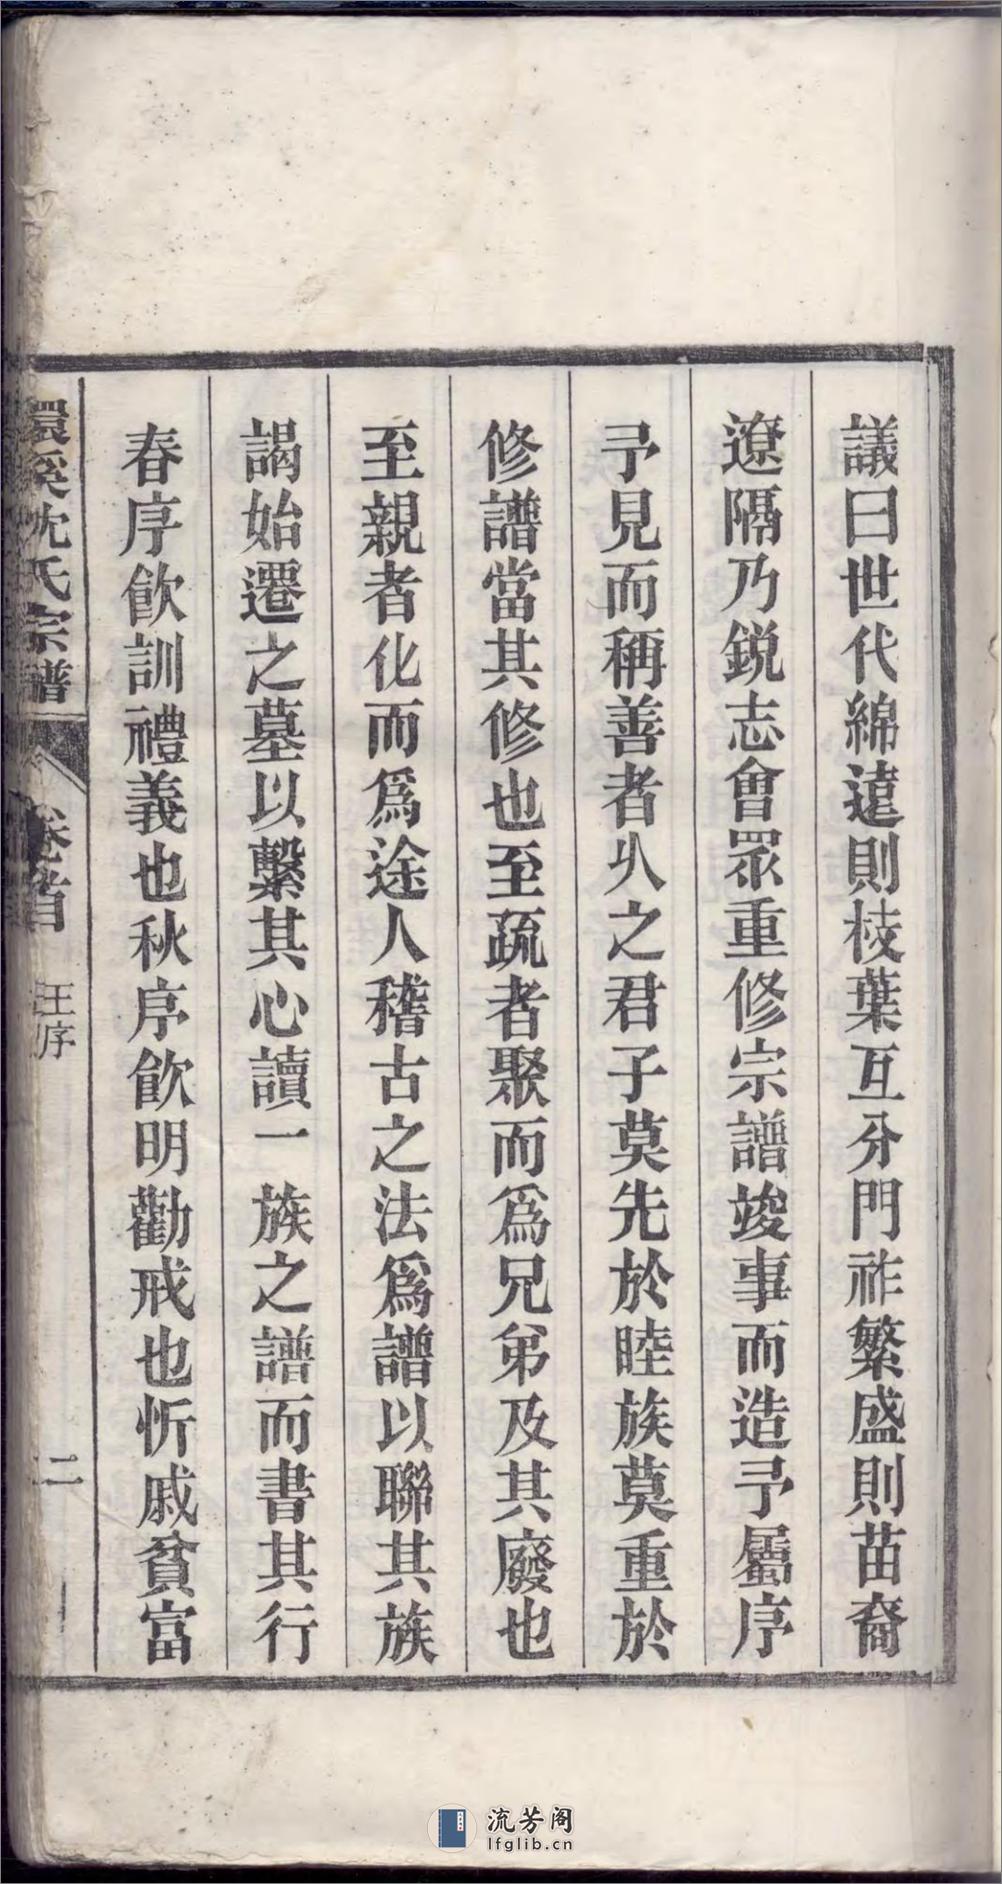 議曰世代綿遠則枝葉互分門祚繁盛則苗裔
遼隔乃銳志會眾重修宗譜竣事而造予屬序
予見而稱善者乆之君子莫先於睦族莫重於
修譜當其修也至疏者聚而爲兄弟及其廢也
至親者化而爲途人稽古之法爲譜以聯其族
謁始遷之墓以繫其心讀一族之譜而書其行
春序飲訓禮義也秋序飲明勸戒也忻戚貧富
環溪沈氏宗譜
卷首
汪序
二
流芳阁
lfglib.cn